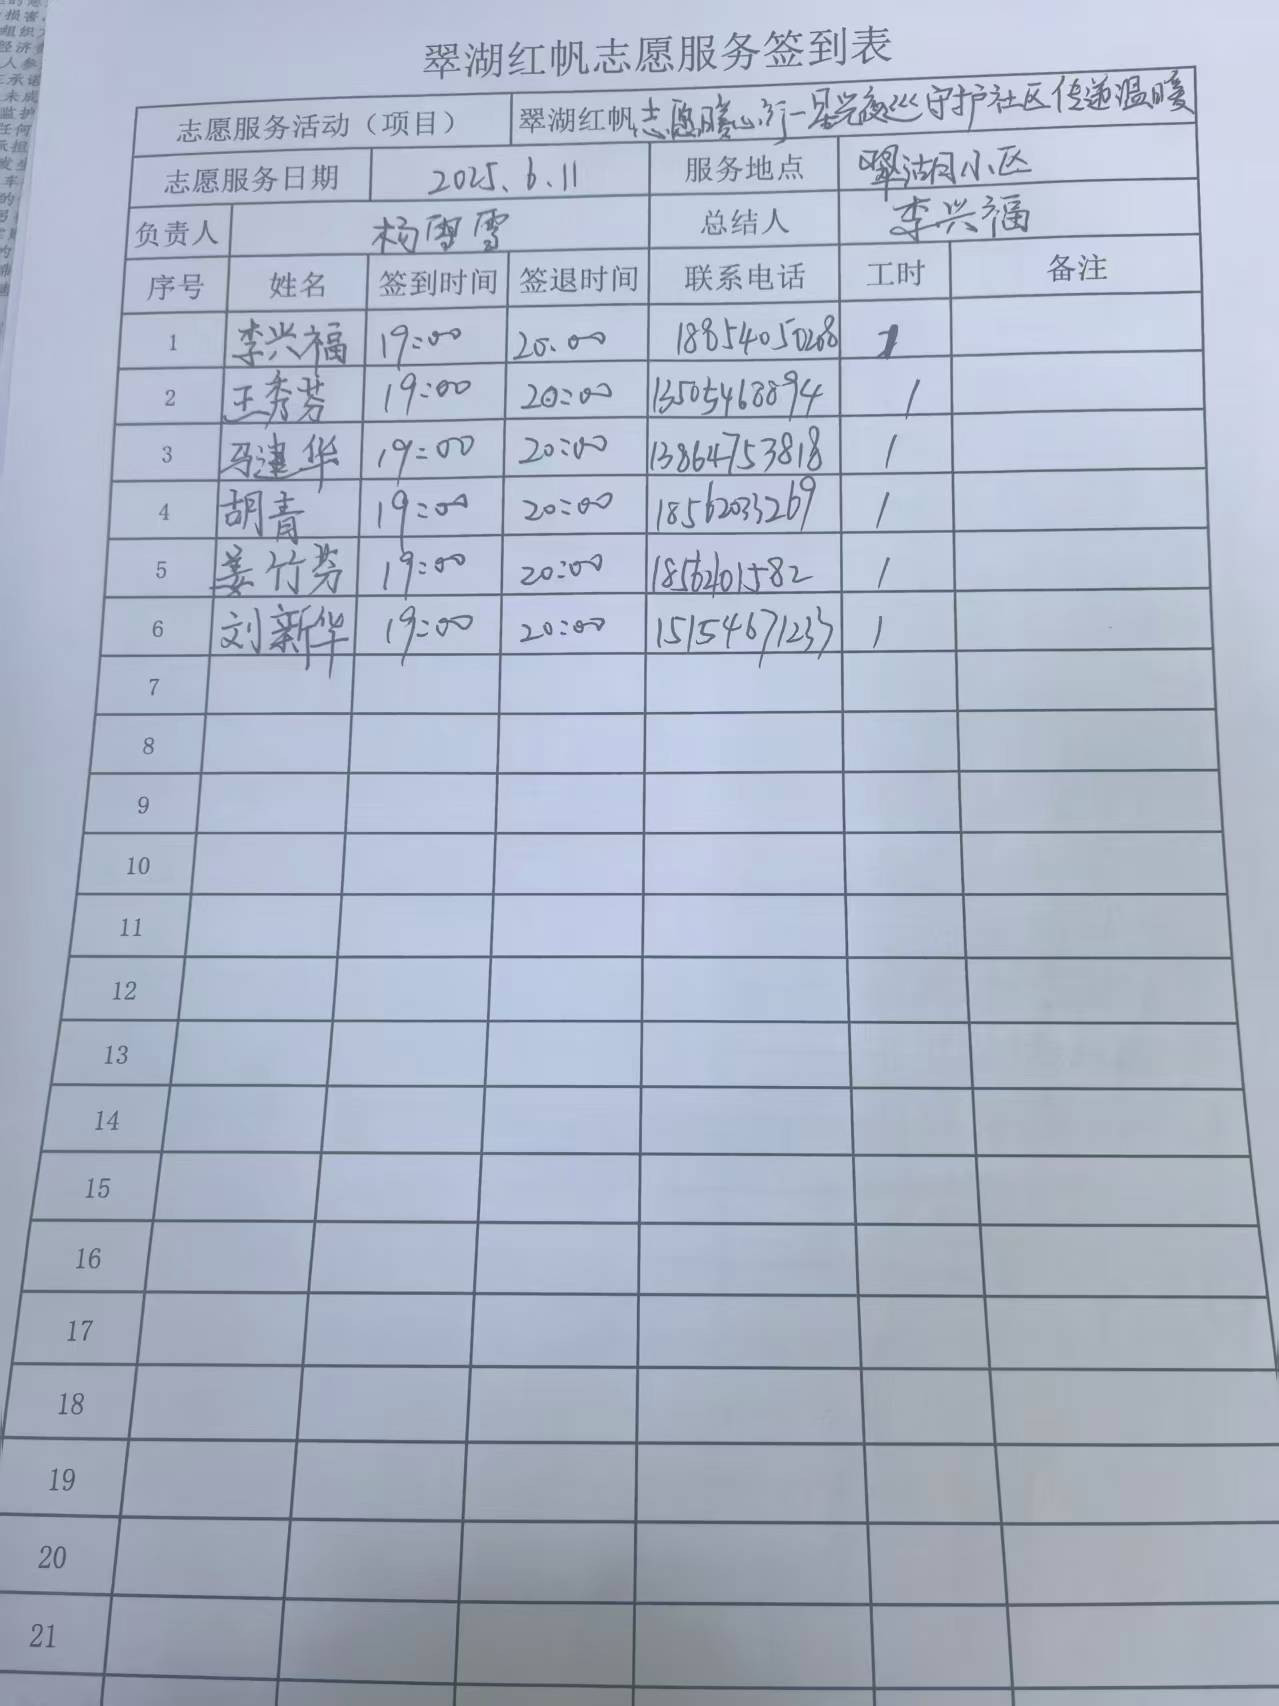 翠湖红帆志愿服务签到表
志愿服务活动（项目） 翠湖红帆志愿暖心行—星光夜巡守护社区传递温暖
志愿服务日期 2025.6.11 服务地点 翠湖小区
负责人 杨雪 总结人 李兴福
序号 姓名 签到时间 签退时间 联系电话 工时 备注
1 李兴福 19:00 20:00 18854050268 1
2 王秀芬 19:00 20:00 13505468894 1
3 马建华 19:00 20:00 13864753818 1
4 胡青 19:00 20:00 18562033269 1
5 姜竹芬 19:00 20:00 1856201582 1
6 刘新华 19:00 20:00 15154671233 1
7
8
9
10
11
12
13
14
15
16
17
18
19
20
21